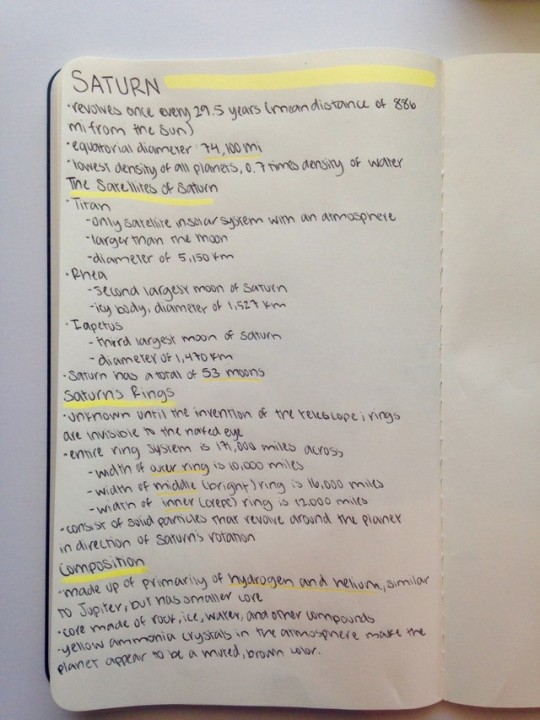 SATURN
·revolves once every 29.5 years (mean distance of 886
mi from the sun)
·equatorial diameter 74,100 mi
·lowest density of all planets, 0.7 times density of water
The Satellites of Saturn
·Titan
-only satellite in solar system with an atmosphere
-larger than the moon
-diameter of 5,150 km
·Rhea
-second largest moon of Saturn
-icy body, diameter of 1,527 km
·Iapetus
-third largest moon of Saturn
-diameter of 1,470 km
·Saturn has a total of 53 moons
Saturn's Rings
·unknown until the invention of the telescope; rings
are invisible to the naked eye
·entire ring system is 171,000 miles across
-width of outer ring is 10,000 miles
-width of middle (bright) ring is 16,000 miles
-width of inner (crepe) ring is 12,000 miles
·consist of solid particles that revolve around the planet
in direction of Saturn's rotation
Composition
·made up of primarily of hydrogen and helium, similar
to Jupiter, but has smaller core
·core made of rock, ice, water, and other compounds
·yellow ammonia crystals in the atmosphere make the
planet appear to be a muted, brown color.